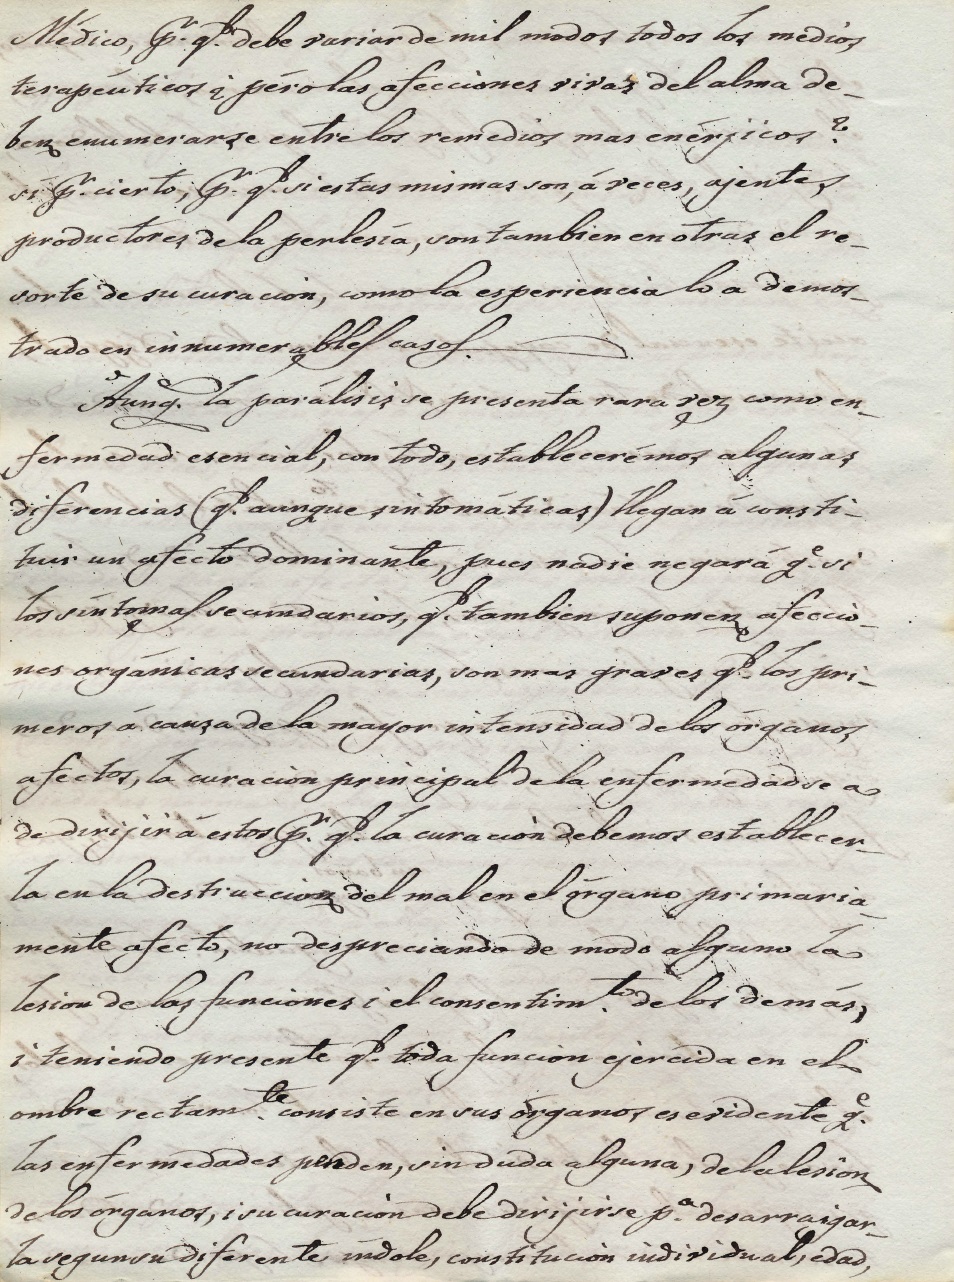 Médico, pr. qe. debe variar de mil modos todos los medios
terapéuticos ¿ péro las afecciones vivas del alma de-
ben enumerarse entre los remedios mas enérjicos?
si pr. cierto; pr. qe. si estas mismas son, á veces, ajentes
productores de la perlesía, son tambien en otras el re-
sorte de su curacion, como la esperiencia lo a demos-
trado en innumerables casos.
Aunqe. la parálisis se presenta rara vez como en-
fermedad esencial, con todo, establecerémos algunas
diferencias (qe. aunque sintomáticas) llegan á consti-
tuir un afecto dominante, pues nadie negará qe. si
los síntomas secundarios, qe. tambien suponen afeccio-
nes orgánicas secundarias, son mas graves qe. los pri-
meros á causa de la mayor intensidad de los órganos
afectos, la curacion principal de la enfermedad se a
de dirijir á estos pr. qe. la curación debemos establecer-
la en la destruccion del mal en el órgano primaria-
mente afecto, no despreciando de modo alguno la
lesion de las funciones i el consentimto. de los demás,
i teniendo presente qe. toda funcion ejercida en el
ombre rectamte. consiste en sus órganos es evidente qe.
las enfermedades penden, sin duda alguna, de la lesion
de los órganos, i su curacion debe dirijirse pa. desarraigar-
la segun su diferente índole, constitución individual, edad,